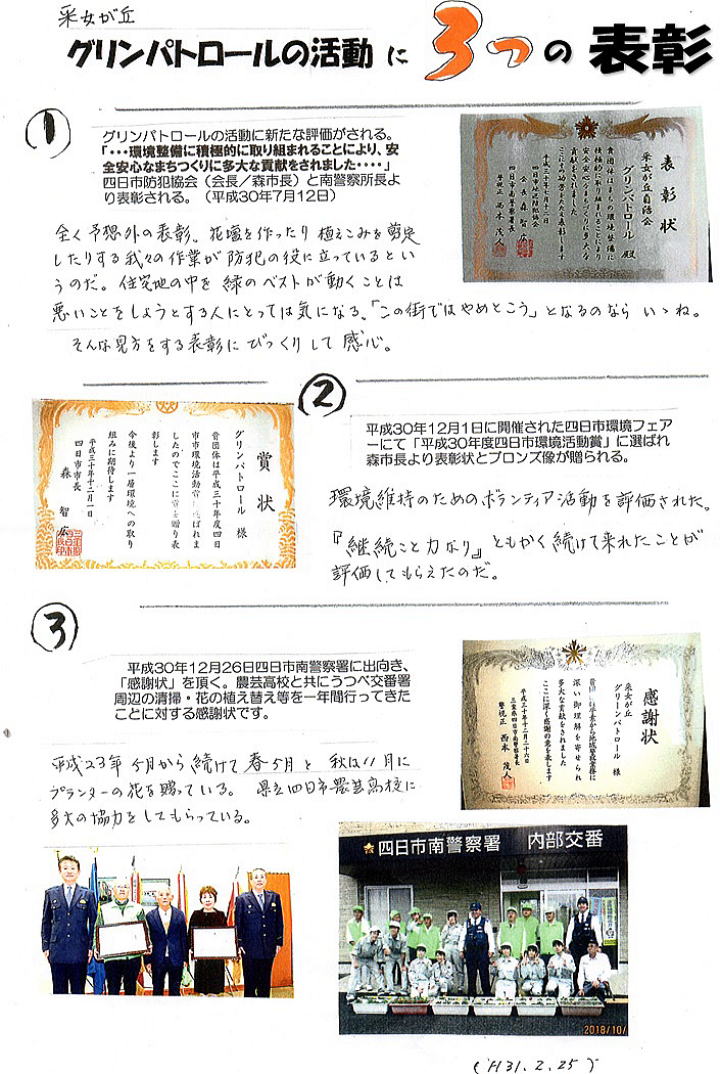 采女が丘
グリンパトロールの活動に3つの表彰
①
グリンパトロールの活動に新たな評価がされる。
「・・・環境整備に積極的に取り組まれることにより、安
全安心なまちづくりに多大な貢献をされました・・・・」
四日市防犯協会(会長/森市長)と南警察所長よ
り表彰される。(平成30年7月12日)
全く予想外の表彰。花壇を作ったり植えこみを剪定
したりする我々の作業が防犯の役に立っているとい
うのだ。住宅地の中を緑のベストが動くことは
悪いことをしようとする人にとっては気になる。「この街ではやめとこう」となるのならいゝね。
そんな見方をする表彰にびっくりして感心。
表彰状
采女が丘自治会
グリーンパトロール 殿
貴団体はまちの環境整備に
積極的に取り組まれることにより
安全安心なまちづくりに多大な
貢献をされました
四日市防犯協会
会長 森 智広
四日市南警察署長
警視正 西木 茂人
②
平成30年12月1日に開催された四日市環境フェア
ーにて「平成30年度四日市環境活動賞」に選ばれ
森市長より表彰状とブロンズ像が贈られる。
環境維持のためのボランティア活動を評価された。
『継続こと力なり』ともかく続けて来れたことが
評価してもらえたのだ。
賞状
グリンパトロール 様
貴団体は平成三十年度四日
市市環境活動賞に選ばれま
したのでここに賞を贈り表
彰します
今後より一層環境への取り
組みに期待します
平成三十年十二月一日
四日市市長
森 智広
③
平成30年12月26日四日市南警察署に出向き、
「感謝状」を頂く。農芸高校と共にうつべ交番署
周辺の清掃・花の植え替え等を一年間行ってきた
ことに対する感謝状です。
平成23年5月から続けて春5月と秋は11月に
プランターの花を贈っている。県立四日市農芸高校に
多大の協力をしてもらっている。
感謝状
采女が丘
グリーンパトロール 様
貴団体は平素から地域警察業務に
深い御理解を寄せられ
多大な貢献をされました
ここに深く感謝の意を表します
平成三十年十二月二十六日
三重県四日市南警察署長
警視正 西木 茂人
四日市南警察署 内部交番
2018/10/
(H31.2.25)